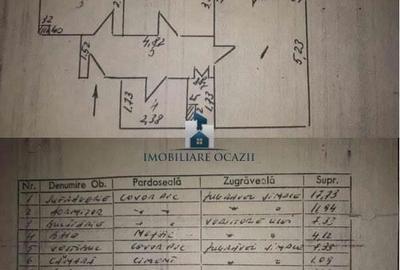 3
12
40
4,92
5
1,52
5,23
1,73
4
2,38
1,73
IMOBILIARE OCAZII
Nr. Denumire Ob. Pardoseală Zugrăveală Supr.
1 Sufragerie covor PVC zugrăveli simple 17,73
2 Dormitor " " " " 11,94
3 Bucătărie " " 7,33
4 Baie 4,12
5 Vestibul covor PVC zugrăveli simple 7,38
6 Cămară ciment " " 1,09